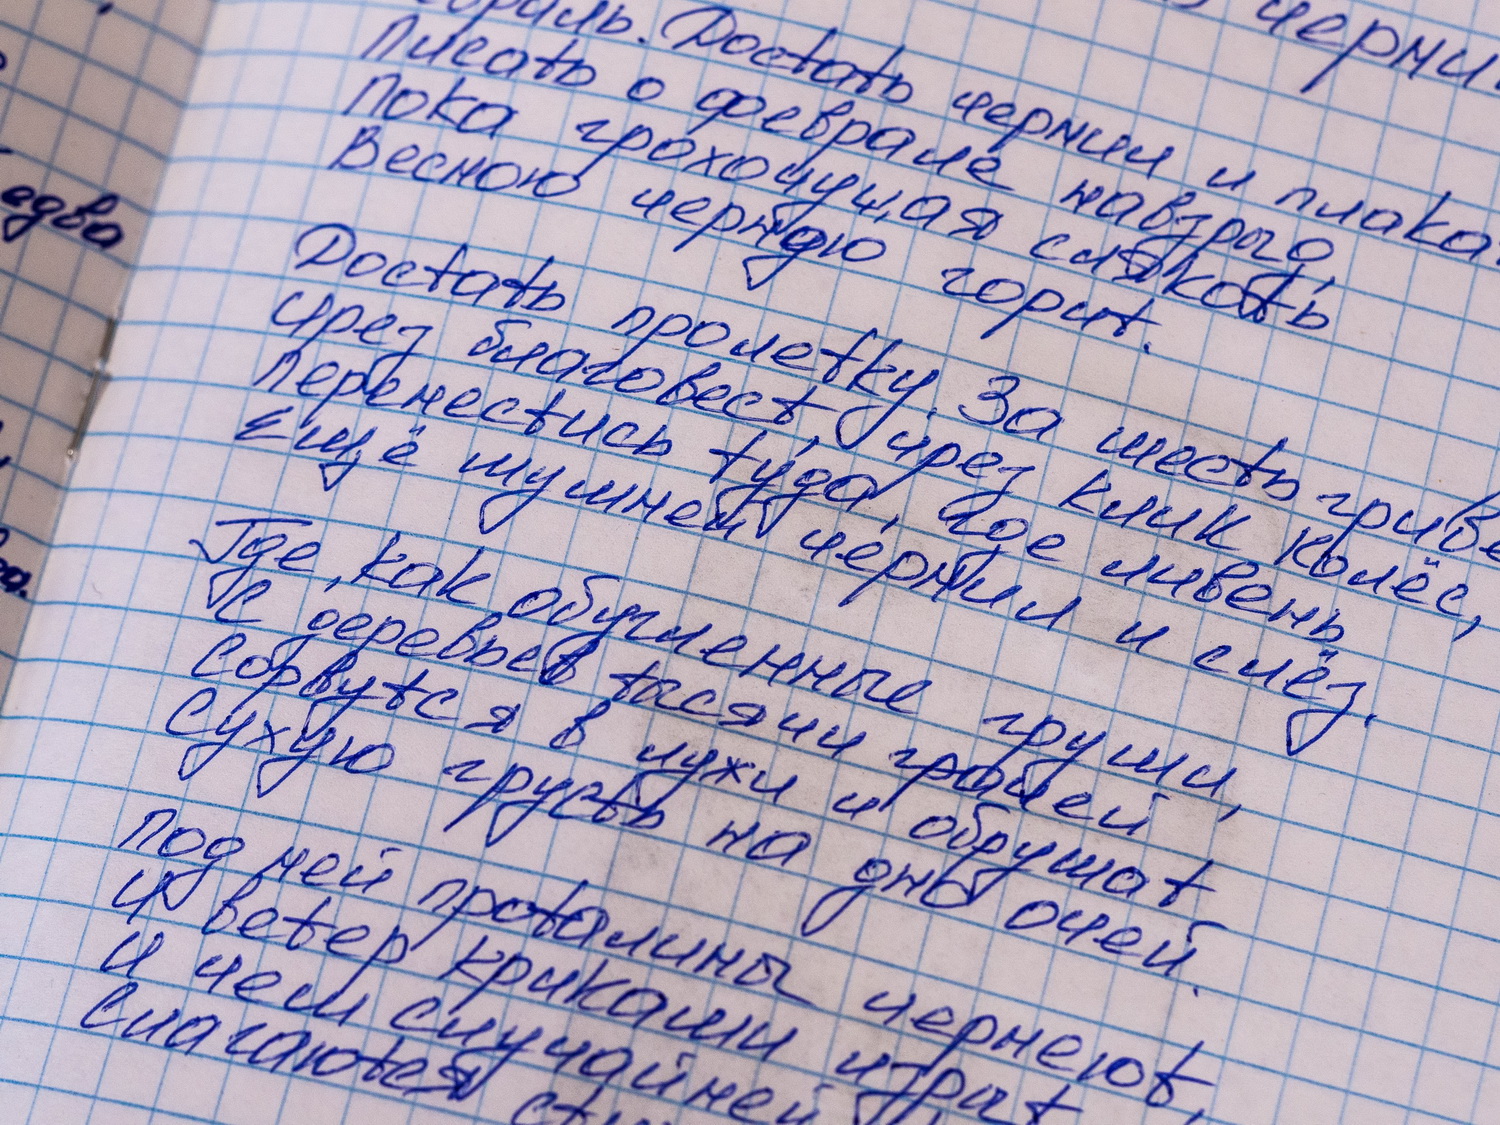 черни
Достать чернил и плака
Писать о феврале навзрыд,
Пока грохочущая слякоть
Весною черною горит.
Достать пролетку. За шесть гриве
Чрез благовест, чрез клик колёс,
Перенестись туда, где ливень
Ещё шумней чернил и слёз.
Где, как обугленные груши,
С деревьев тысячи грачей
Сорвутся в лужи и обрушат
Сухую грусть на дно очей.
Под ней проталины чернеют,
И ветер криками изрыт
И чем случайней
Слагаются
едва